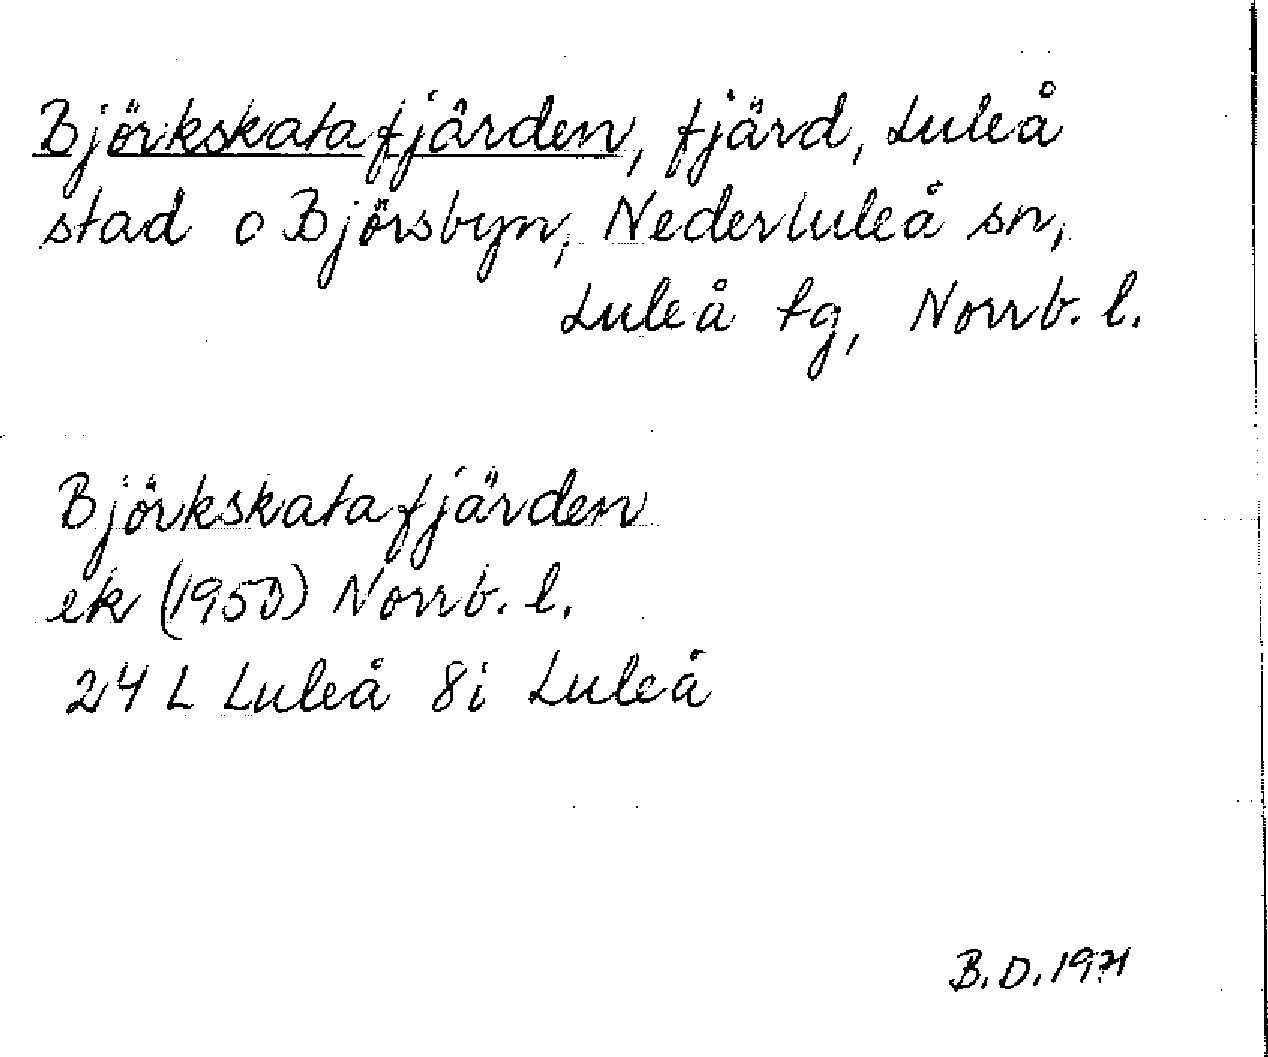 Björkskatafjärden, fjärd, Luleå
stad o Björsbyn, Nederluleå sn,
Luleå tg, Norrb. l.
Björkskatafjärden
ek (1950) Norrb. l.
24 L Luleå 8i Luleå
B.D. 1971